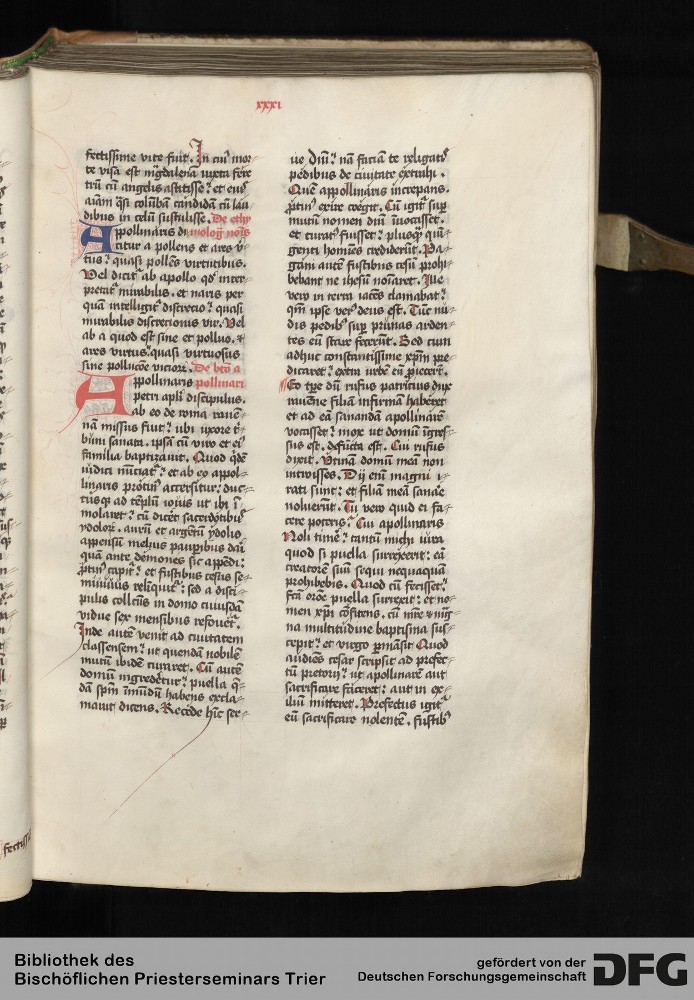 xxxi
fectissime vite fuit. In cuiꝰ mor⸗
te visa est mg̃dalenā iuxta fere⸗
trū cū angelis astitisse ⁊ et eiꝰ
aīam q̃si colūbam cādidam cū lau
dibus in celū sustulisse. De ethy
Appollinaris di mologͥ noīs
citur a pollens et ares v̾⸗
tus ⁊ quasi pollēs virtutibus.
Vel dicit᷑ ab apollo qd̾ inter⸗
pretat᷑ mirabilis. et naris per
quā intelligit᷑ discretio ⁊ quasi
mirabilis discretionis vir. Vel
ab a quod est sine et polluo. ⁊
ares virtus. quasi virtuosus
sine pollucōe viciorͫ. De btō a
Appollinaris pollinari
petri apl̄i discipulus.
ab eo de roma raue⸗
nā missus fuit ⁊ ubi uxorē t̾
buni sanauit. ipsā cū viro et eiꝰ
familia baptizauit. Quod q̄dē
iudici nūciat᷑ ⁊ et ab eo appol⸗
linaris protinꝰ accersitur ⁊ duc⸗
tusqꝫ ad tēplū iouis ut ibi ī
molaret ⁊ cū dicēt sacerdotibꝰ
ydolorͫ. aurū et argētū ydolis
appensū melius pauꝑibus dari
quā ante demones sic appēdi ⁊
ꝓtinꝰ capit᷑ ⁊ et fustibus cesus se⸗
miuiuus reliq̄uit᷑ ⁊ sed a disci⸗
pulis collcūs in domo cuiusdā
vidue sex mensibus refouet᷑.
Inde autē venit ad ciuitatem
classensem ⁊ ut quendā nobilē
mutū ibidē curaret. Cū autē
domū ingredēretur ⁊ puella q̄⸗
dā spm̄ īmūdū habens excla⸗
mauit dicens. Recede hīc ser⸗
ue dei ⁊ nā faciā te religatꝭ
pedibus de ciuitate extrahi.
Quē appollinaris increpans.
ꝓtinꝰ exire coegit. Cū igit᷑ sup̄
mutū nomen dn̄i inuocasset.
et curatꝰ fuisset ⁊ plusqꝫ quī⸗
genti homīes crediderūt. Pa⸗
gani autē fustibus cesū prohi⸗
bebant ne ihesū noīaret. Ille
vero in terra iacēs clamabat ⁊
qm̄ ipse verꝰ deus est. Tūc nu⸗
dis pedibꝰ sup̄ prunas arden⸗
tes eū stare fecerūt. Sed cum
adhuc constantissime xpm̄ pre⸗
dicaret ⁊ extra urbē eū ꝓiecerūt.
Eo tꝑe dū rufus patricius dux
rauēne filiā infirmā haberet
et ad eā sanandā apollinarē
vocasset ⁊ mox ut domū īgres⸗
sus est. defūcta est. Cui rufus
dixit. Vtinā domū meā non
introisses. Dij enī magni i⸗
rati sunt ⁊ et filiā meā sanare
noluerūt. Tu vero quid ei fa⸗
cere poteris ⁊ Cui apollinaris
Noli timē ⁊ tantū michi iura
quod si puella surrexerit ⁊ eā
creatorē suū sequi nequaquā
prohibebis. Quod cū fecisset ⁊
fcā orōe puella surrexit ⁊ et no⸗
men xp̄i cōfitens. cū mr̄e ⁊ mag̾⸗
na multitudine baptisma sus⸗
cepit ⁊ et virgo permāsit Quod
audiēs cesar scripsit ad prefec⸗
tū pretorij ⁊ ut apollinarē aut
sacrificare faceret ⁊ aut in ex⸗
iliū mitteret. Prefectus igit᷑
eū sacrificare nolentē. fustibꝰ
Bibliothek des
Bischöflichen Priesterseminars Trier
gefördert von der
Deutschen Forschungsgemeinschaft
DFG